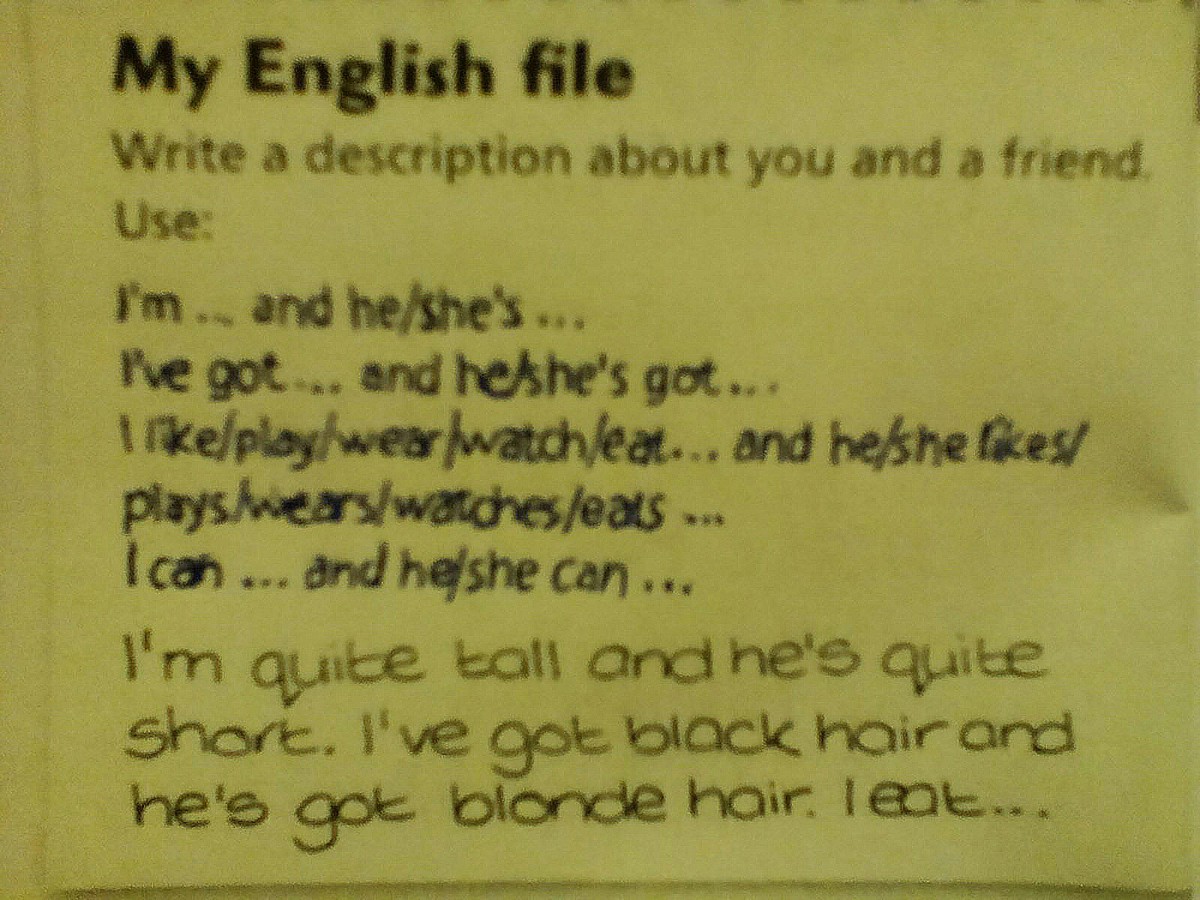 My English file
Write a description about you and a friend.
Use:
I'm ... and he/she's ...
I've got ... and he/she's got ...
I like/play/wear/watch/eat... and he/she likes/
plays/wears/watches/eats ...
I can ... and he/she can ...
I'm quite tall and he's quite
short. I've got black hair and
he's got blonde hair. I eat...